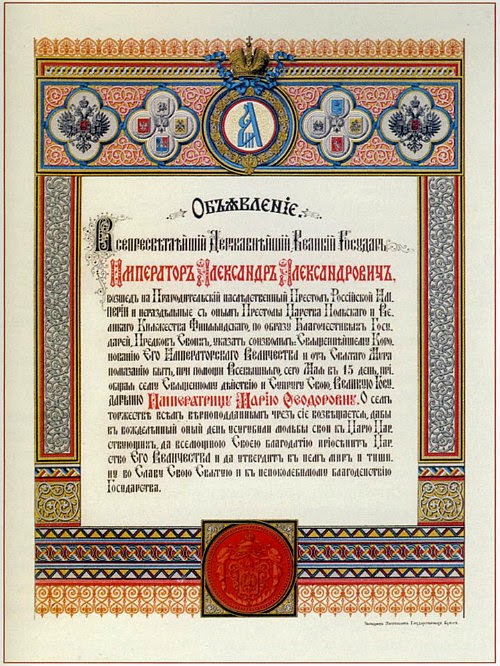 Объявленіе.
Всепресвѣтлѣйшій Державнѣйшій Великій Государь
Императоръ Александръ Александровичъ,
возшедъ на Прародительскій наслѣдственный Престолъ Россійской Им-
періи и нераздѣльные съ онымъ Престолы Царства Польскаго и Ве-
ликаго Княжества Финляндскаго, по образу Благочестивыхъ Госу-
дарей, Предковъ Своихъ, указать соизволилъ: Священнѣйшему Коро-
нованію Его Императорскаго Величества и отъ Святаго Мѵра
помазанію быть, при помощи Всевышняго, сего Мая въ 15 день, прі-
общая сему Священному дѣйствію и Супругу Свою, Великую Госу-
дарыню Императрицу Марію Ѳеодоровну. О семъ
торжествѣ всѣмъ вѣрноподданнымъ чрезъ сіе возвѣщается, дабы
въ вожделѣнный оный день усугубили мольбы свои къ Царю Цар-
ствующихъ, да всемощною Своею благодатію пріосѣнитъ Цар-
ство Его Величества и да утвердитъ въ немъ миръ и тиши-
ну во Славу Свою Святую и къ непоколебимому благоденствію
Государства.